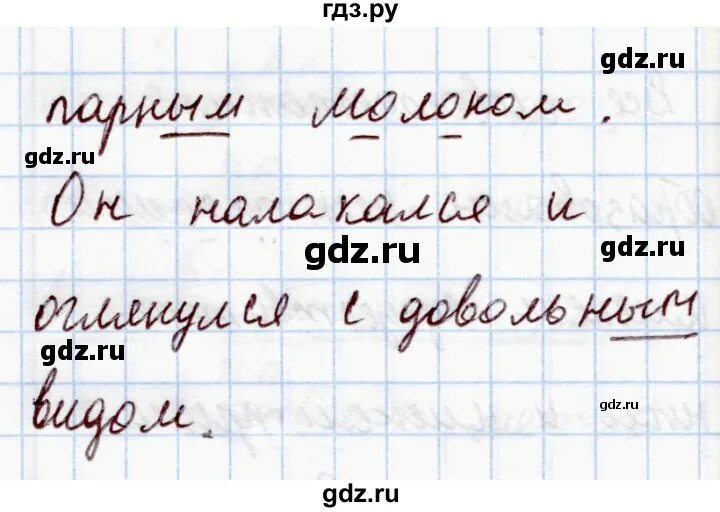 гдз.ру
gdz.ru
парным молоком.
gdz.ru
Он налакался и
gdz.ru
gdz.ru
оглянулся с довольным
gdz.ru
видом.
gdz.ru
gdz.ru